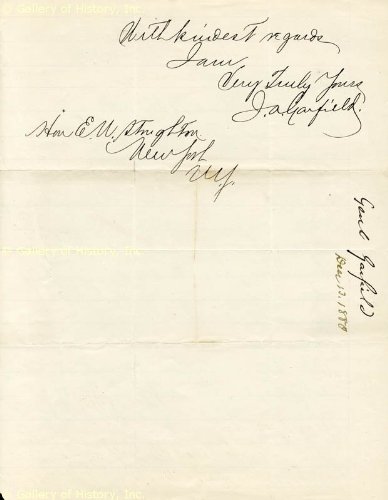 © Gallery of History, Inc.
With kindest regards
I am
Very Truly Yours
J. A. Garfield
Hon E. W. Stoughton
New York
N.Y.
Genl Garfield
Dec 13. 1880
© Gallery of History, Inc
© Gallery of History, Inc